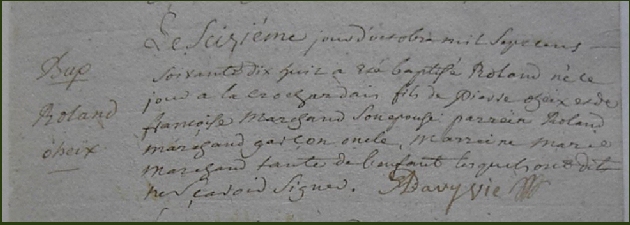 Le Seizième jour d'octobre mil Sept cens
Bap
Roland
choix
soixante dix huit a été baptisé Roland né ce
jour a la fils de Pierre choix et de
françoise Marchand Son epouse parrein Roland
marchand garçon oncle, Marreine marie
marchand tante de l'enfant lesquels ont dit
ne Sçavoir Signer.